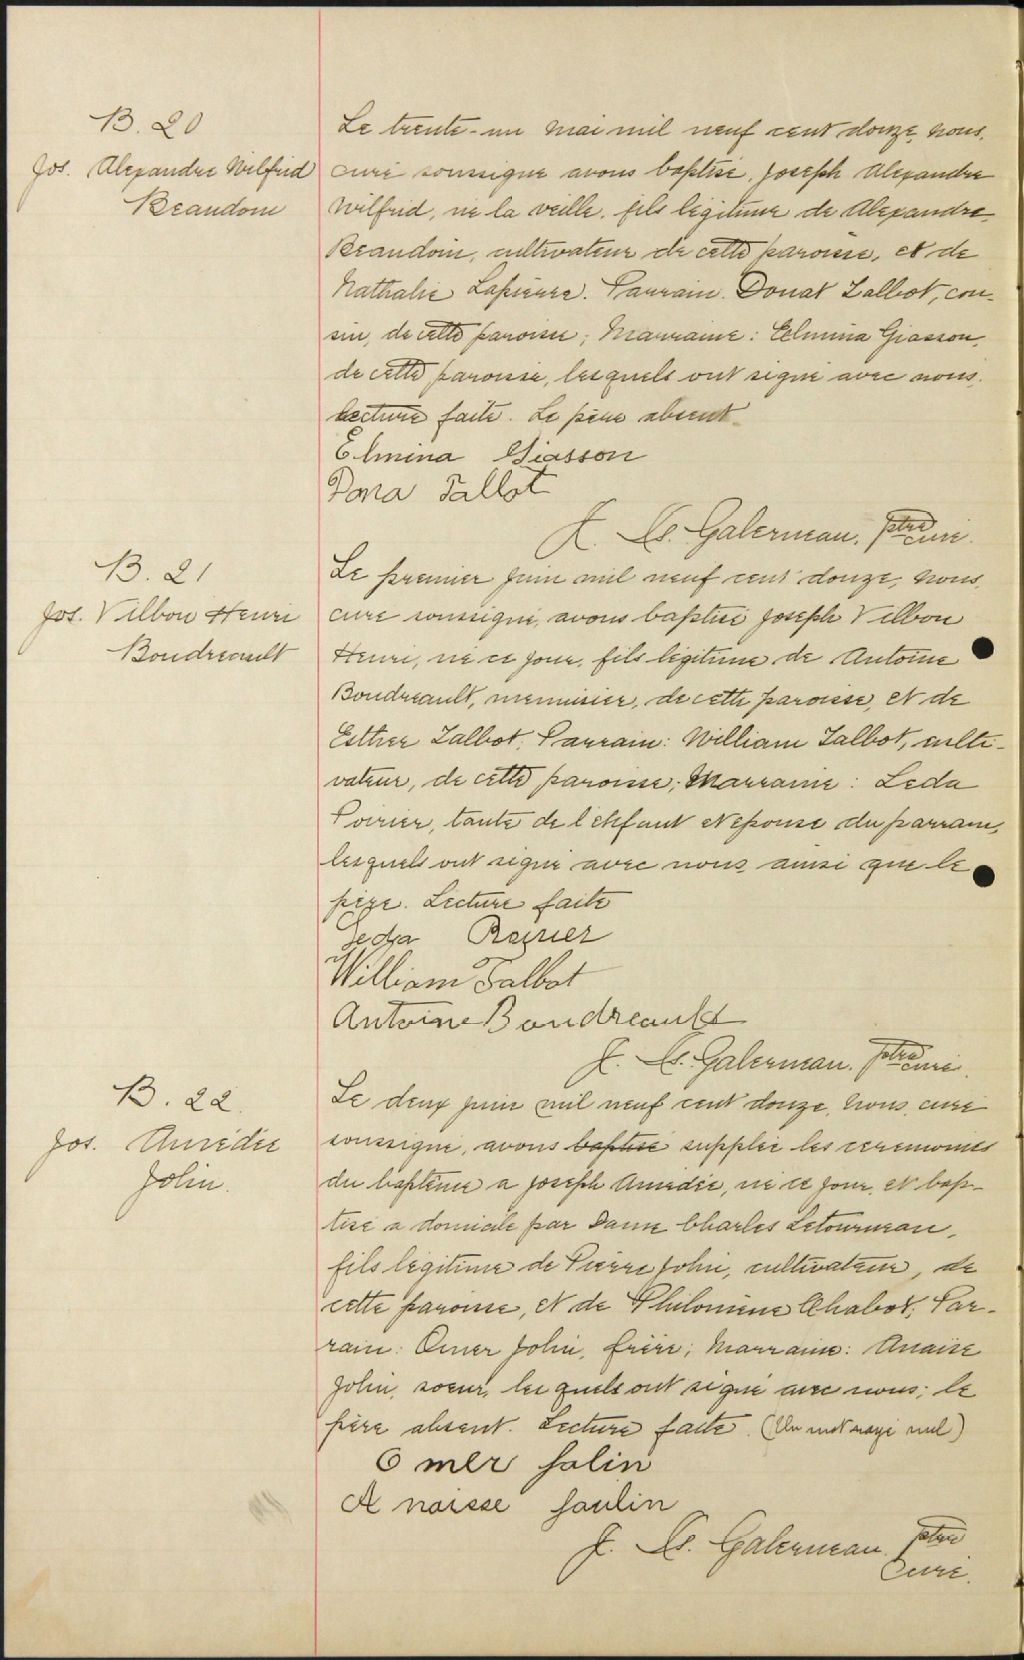 B. 20
Jos. Alexandre Wilfrid
Beaudoin
Le trente-un mai mil neuf cent douze, nous,
curé soussigné avons baptisé, Joseph Alexandre
Wilfrid, né la veille, fils légitime de Alexandre
Beaudoin, cultivateur de cette paroisse, et de
Nathalie Lapierre. Parrain. Donat Talbot, cou-
sin, de cette paroisse; Marraine: Elmina Giasson,
de cette paroisse, lesquels ont signé avec nous.
Lecture faite. Le père absent.
Elmina Giasson
Dona Talbot
J. Ls. Galerneau, ptre curé.
B. 21
Jos. Vilbon Henri
Boudreault
Le premier juin mil neuf cent douze, nous,
curé soussigné, avons baptisé Joseph Vilbon
Henri, né ce jour, fils légitime de Antoine
Boudreault, menuisier, de cette paroisse, et de
Esther Talbot. Parrain: William Talbot, culti-
vateur, de cette paroisse; Marraine: Leda
Poirier, tante de l'enfant et épouse du parrain,
lesquels ont signé avec nous, ainsi que le
père. Lecture faite
Leda
William Talbot
Antoine Boudreault
J. Ls. Galerneau, ptre curé.
B. 22.
Jos. Amédée
Jolin.
Le deux juin mil neuf cent douze, nous, curé
soussigné, avons baptisé supplée les cérémonies
du baptême a Joseph Amédée, né ce jour, et bap-
tisé a domicile par Dame Charles Letourneau,
fils légitime de Pierre Jolin, cultivateur, de
cette paroisse, et de Philomène Chabot; Par-
rain: Omer Jolin, frère; Marraine: Anaïse
Jolin, soeur, lesquels ont signé avec nous; le
père absent. Lecture faite. (Un mot rayé nul)
Omer Jolin
Anaisse Joulin
J. Ls. Galerneau ptre
Curé.